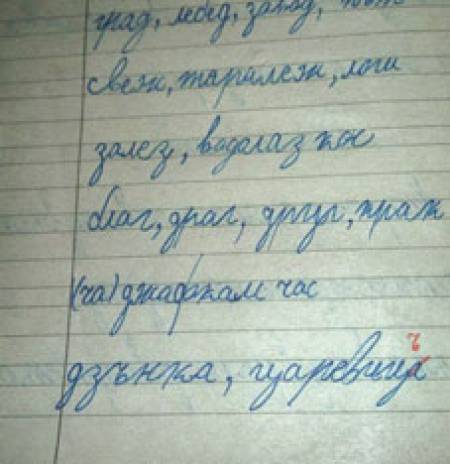 град, лебед, завод,
свеж, таралеж,
залез, водолаз кос
благ, драг, друг,
(ча) джафкам час
дзънка, царевица